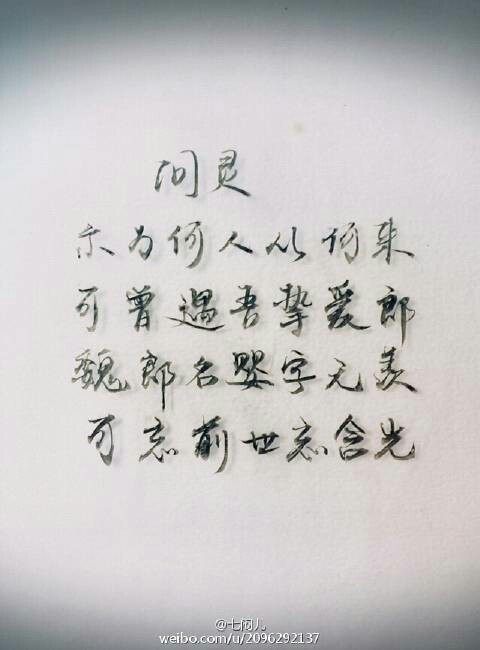 问灵
尔为何人从何来
可曾遇吾挚爱郎
魏郎名婴字无羡
可忘前世忘含光
@七问儿
weibo.com/u/2096292137